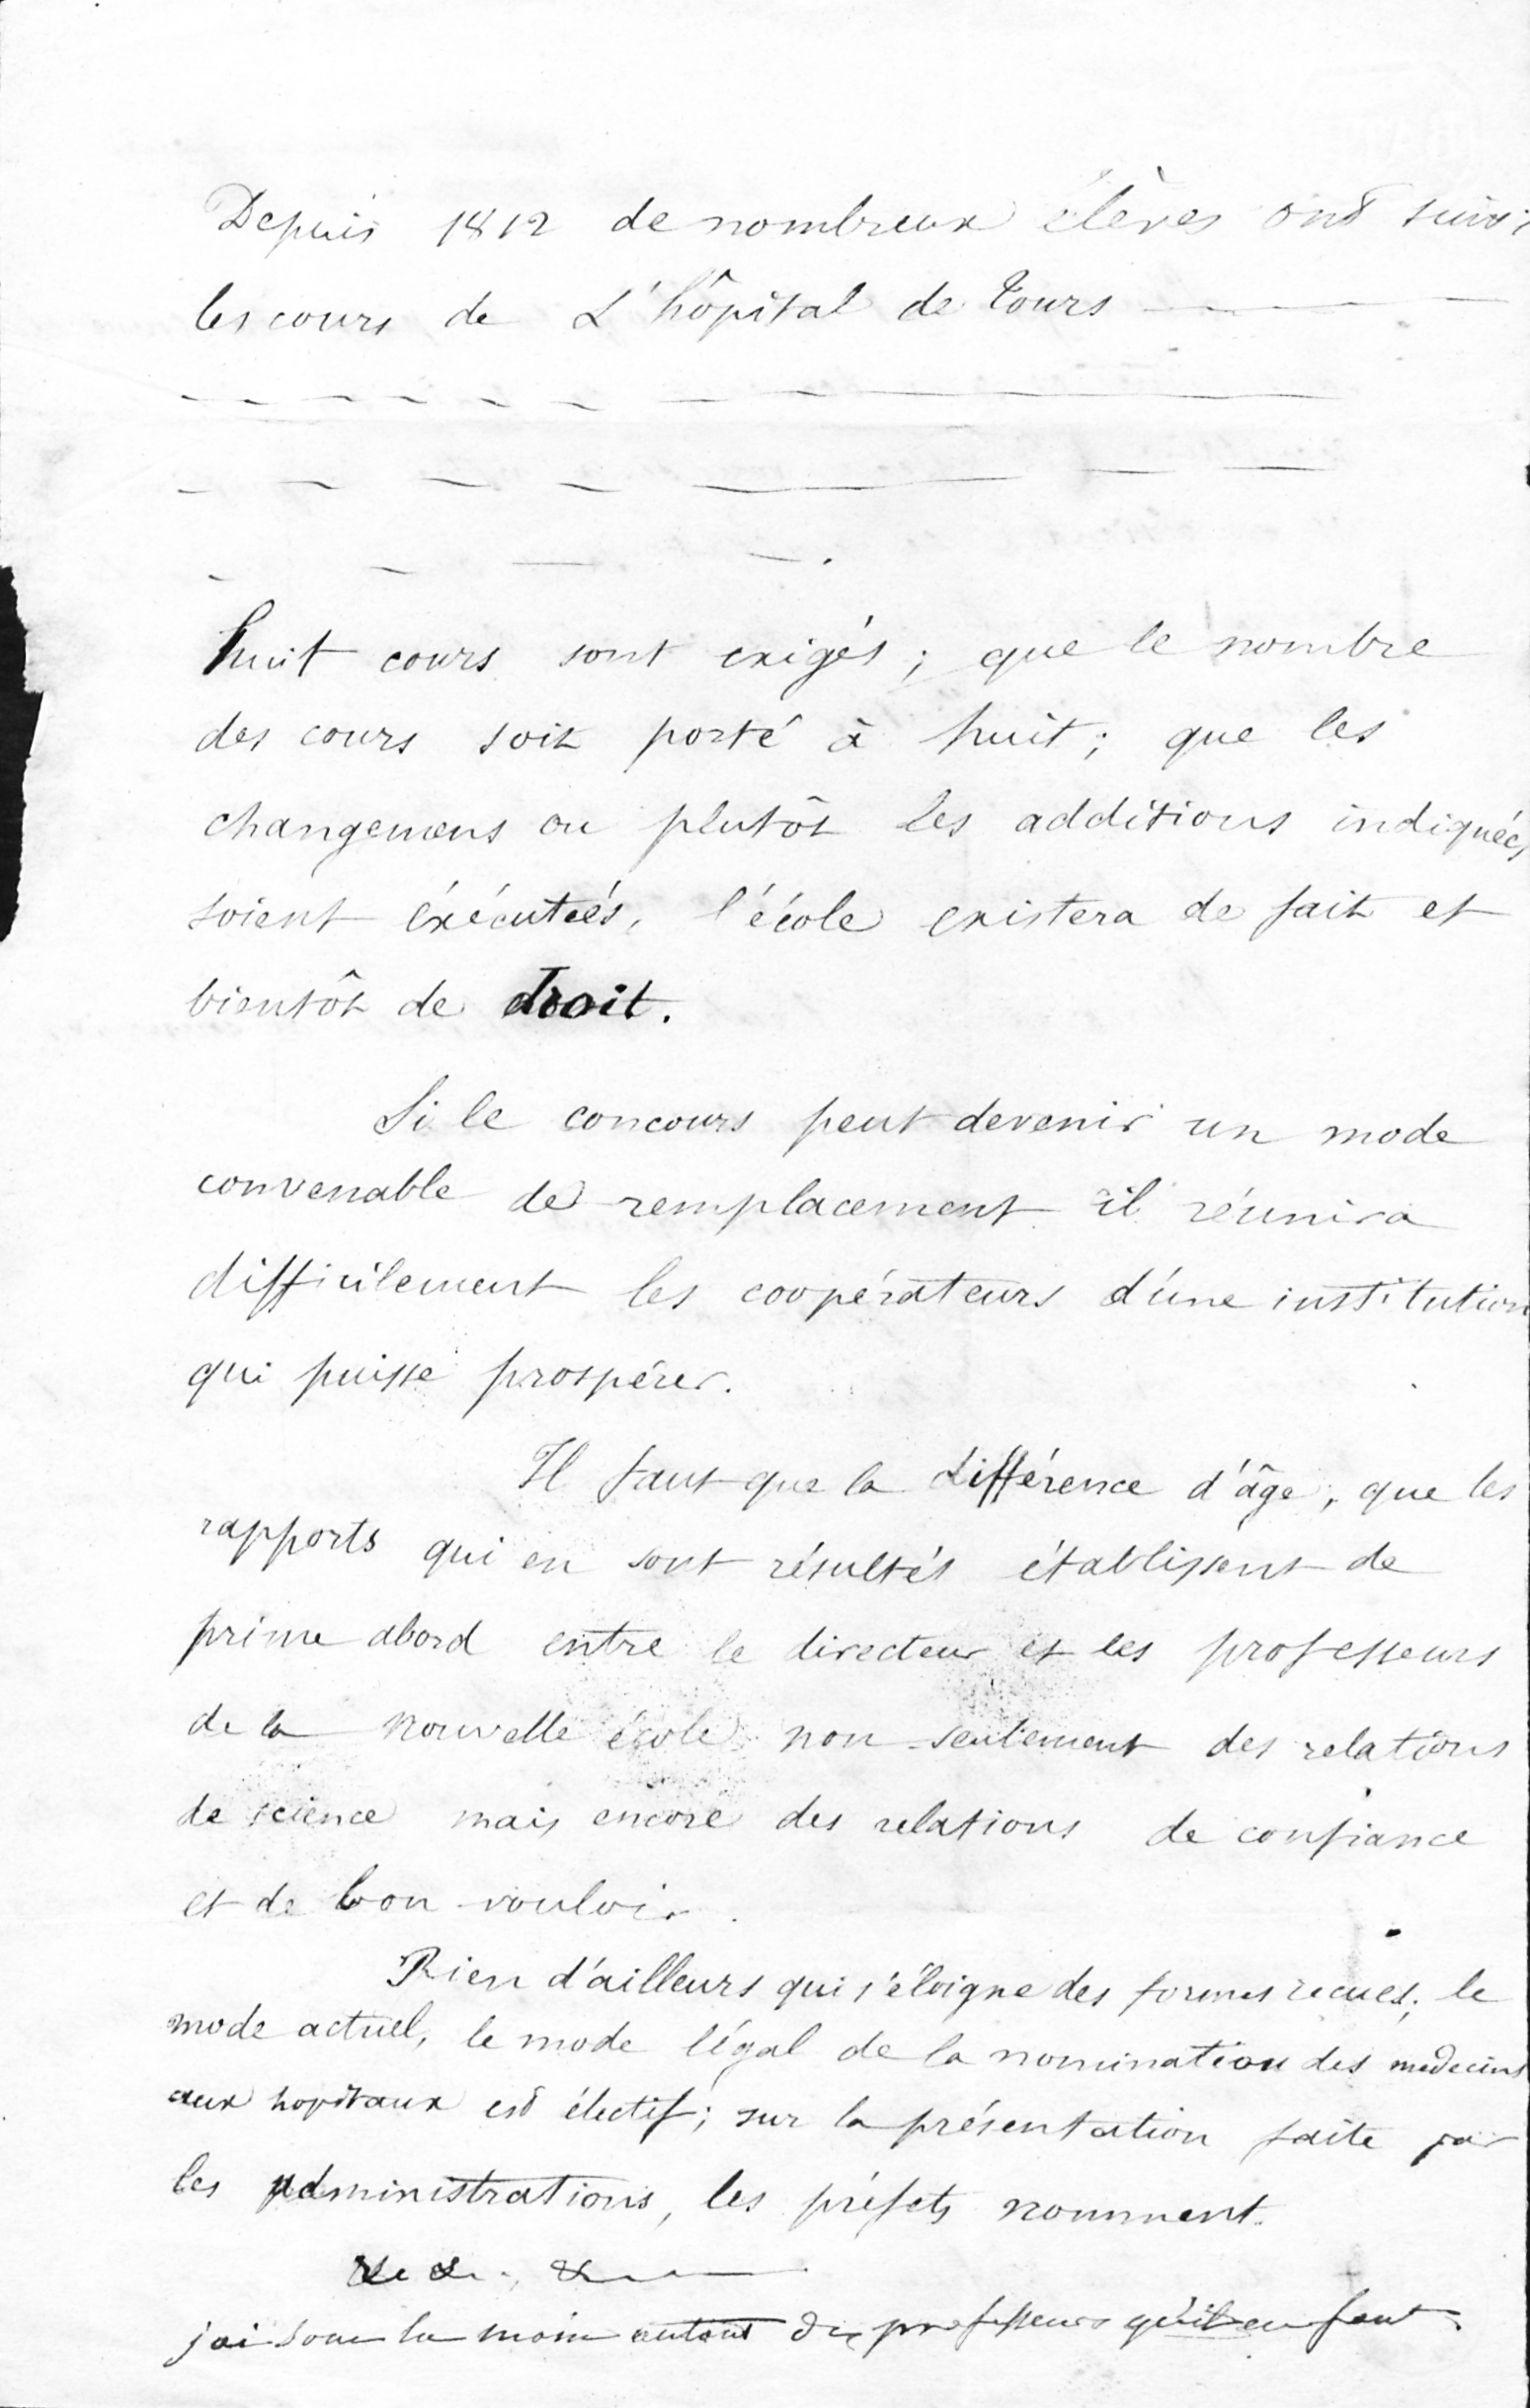 Depuis 1812 de nombreux élèves ont suivi
les cours de L'hôpital de Tours
huit cours sont exigés ; que le nombre
des cours soit porté à huit ; que les
changemens ou plutôt les additions indiquées
soient éxécuteés, l'école existera de fait et
bientôt de droit.
Si le concours peut devenir un mode
convenable de remplacement il réunira
difficilement les coopérateurs d'une institution
qui puisse prospérer.
Il faut que la différence d'âge, que les
rapports qui en sont résultés établissent de
prime abord entre le directeur et les professeurs
de la nouvelle école non seulement des relations
de science mais encore des relations de confiance
et de bon vouloir.
Rien d'ailleurs qui s'éloigne des formes recues ; le
mode actuel, le mode légal de la nomination des medecins
aux hopitaux est électif ; sur la présentation faite par
les administrations, les préfets nomment.
j'ai sous la main autant de professeurs qu'il en faut.